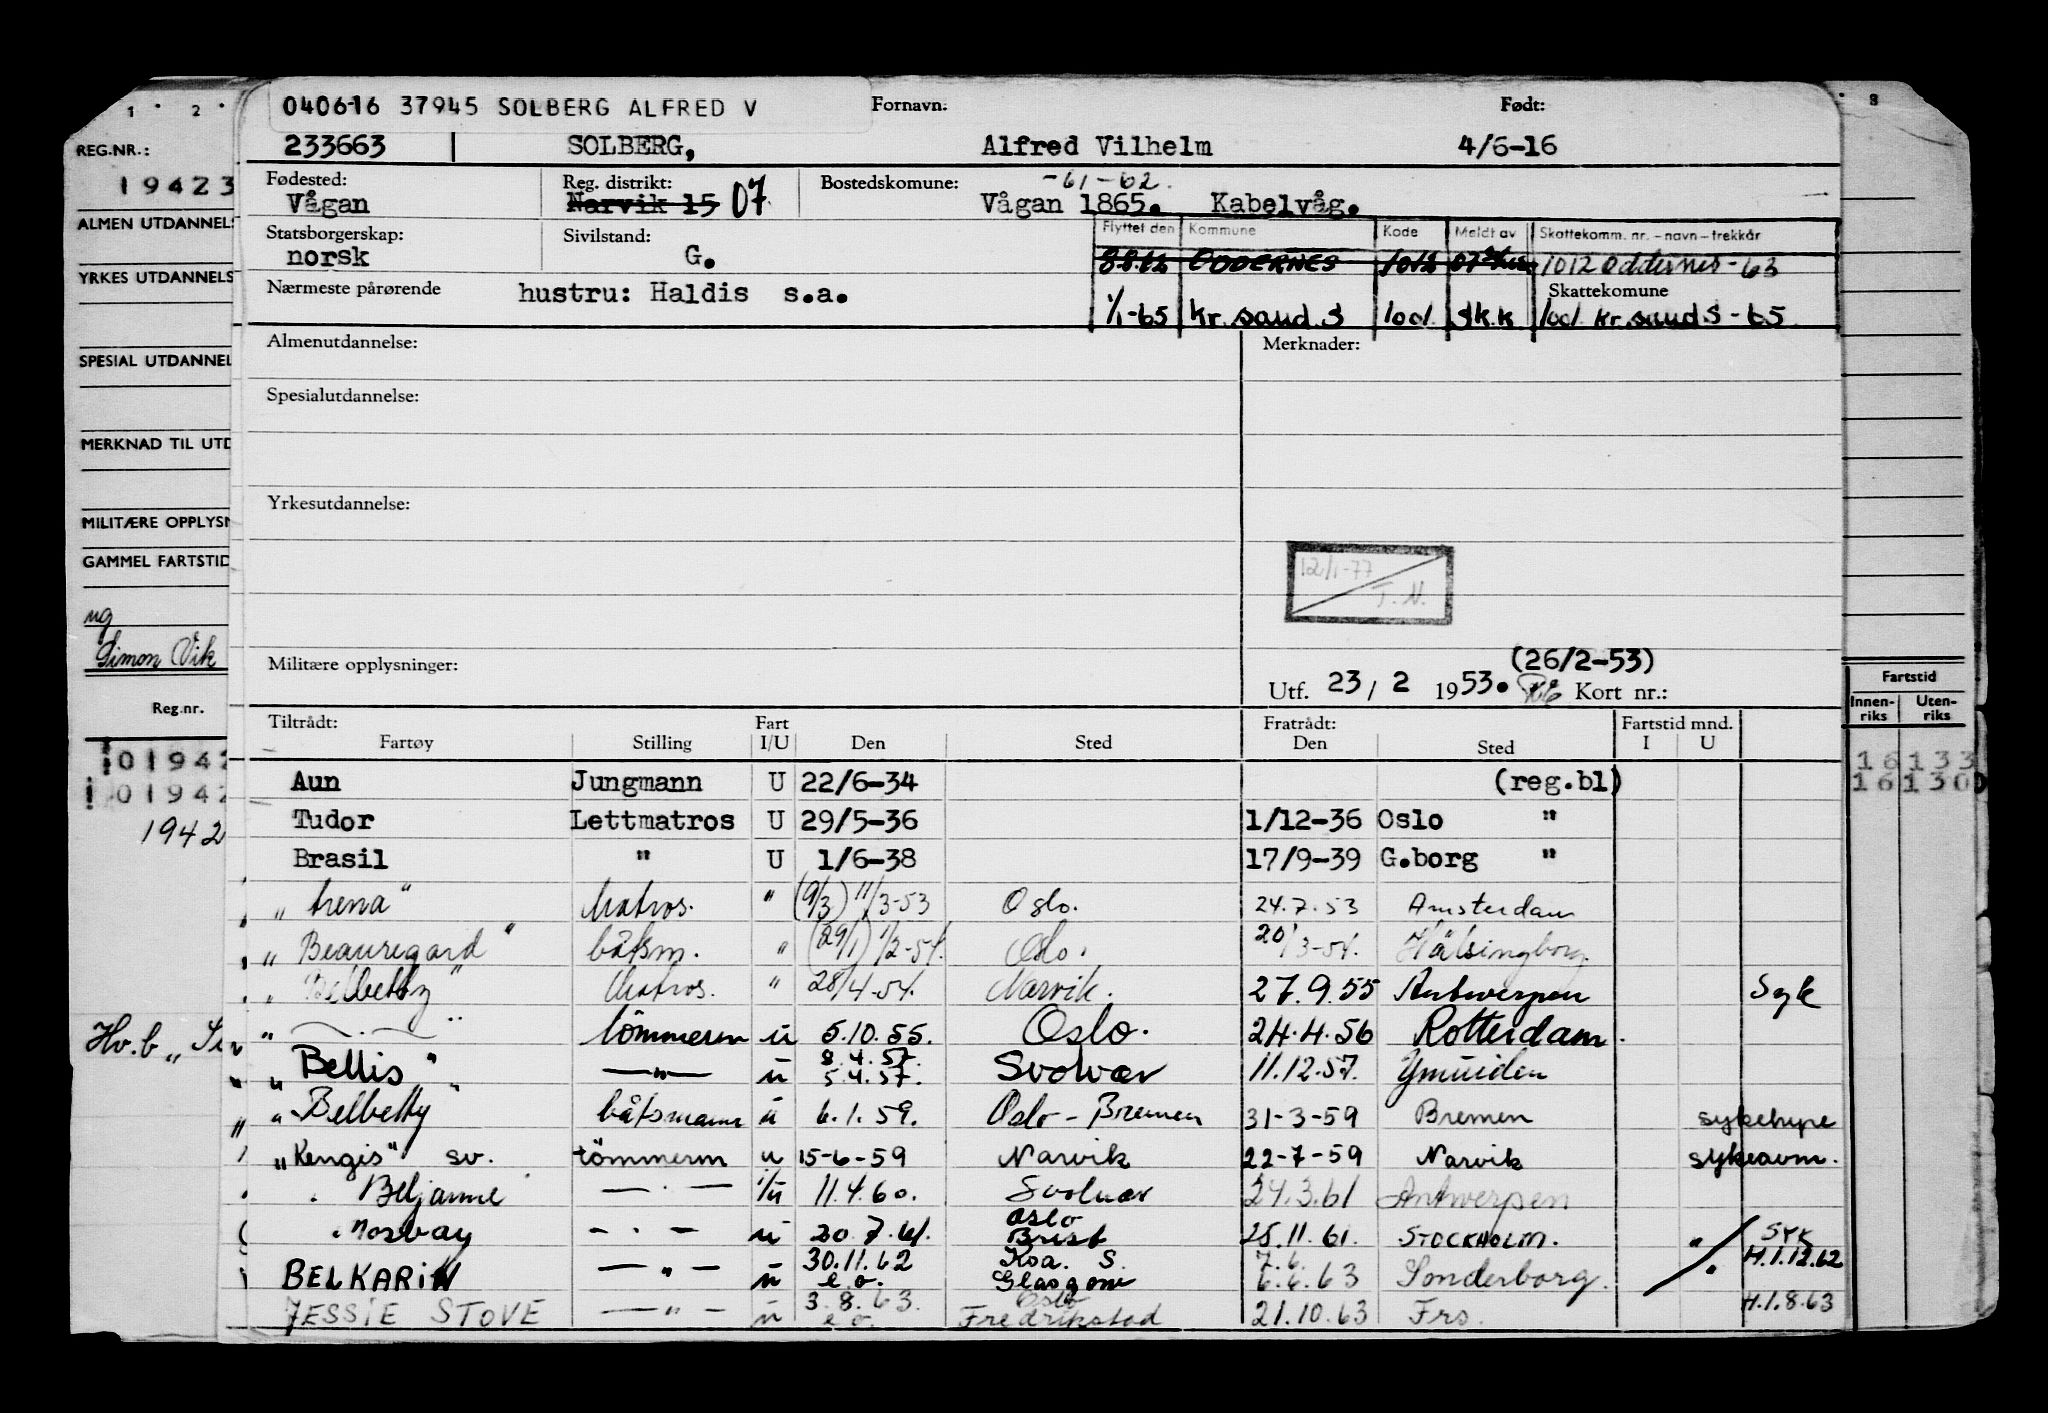 1 · 2 · 8
040616 37945 SOLBERG ALFRED V Fornavn: Født:
REG.NR.: 233663 SOLBERG, Alfred Vilhelm 4/6-16
19423
Fødested: Reg. distrikt: Bostedskomune: -61-62.
Vågan Narvik 15 07 Vågan 1865. Kabelvåg.
ALMEN UTDANNELS
Statsborgerskap: Sivilstand: Flyttet den Kommune Kode Meldt av Skattekomm. nr. -navn-trekkår
norsk G. 8.8.62 ODDERNES 1012 07 1012 Oddernes-63
YRKES UTDANNELS
Nærmeste pårørende hustru: Haldis s.a. Skattekomune
1/1-65 kr.sand.S 1001. sk.k 1001 kr.sand S-65
Almenutdannelse: Merknader:
SPESIAL UTDANNEL
Spesialutdannelse:
MERKNAD TIL UTD
Yrkesutdannelse:
MILITÆRE OPPLYSN
GAMMEL FARTSTID
12/1-77
T.N.
ug
Simon Vik
Militære opplysninger: (26/2-53)
Utf. 23/2 1953. Kort nr.:
Fartstid
Innen-riks Uten-riks
Reg.nr.
Tiltrådt: Fart Fratrådt: Fartstid mnd.
Fartøy Stilling I/U Den Sted Den Sted I U
01942 16133
01942 16130
1942
Aun Jungmann U 22/6-34 (reg.bl)
Tudor Lettmatros U 29/5-36 1/12-36 Oslo "
Brasil " U 1/6-38 17/9-39 G.borg "
" Matros. " (9/3) 11/3-53 Oslo. 24.7.53 Amsterdam
" Beauregard " båtsm. " (29/1) 1/2-54. Oslo. 20/3-54. Hälsingborg
" Belbetty " Matros. " 28/4-54. Narvik. 27.9.55 Antwerpen Syk
Hv.b „
" — . — " tömmerm u 5.10.55. Oslo. 24.4.56 Rotterdam.
„ Bellis " — " — u 8.4.57. 5.4.57. Svolvær 11.12.57. Ymuiden
" Belbetty " båtsmann u 6.1.59. Oslo - Bremen 31-3-59 Bremen sykehype
„Kengis" sv. tömmerm u 15-6-59 Narvik 22-7-59 Narvik sykeavm.
Beljanne — . — i/u 11.4.60. Svolvær 24.3.61 Antwerpen
Norway — . — u 20.7.61. Oslo Brist 25.11.61. STOCKHOLM. " SYK
BELKARIN — " — u 30.11.62 e.o. Koa. S. Glasgow 7.6. 6.6.63 Sonderborg. H.1.12.62
JESSIE STOVE — " — u 3.8.63. e.o. Oslo Fredrikstad 21.10.63 Frs. H.1.8.63